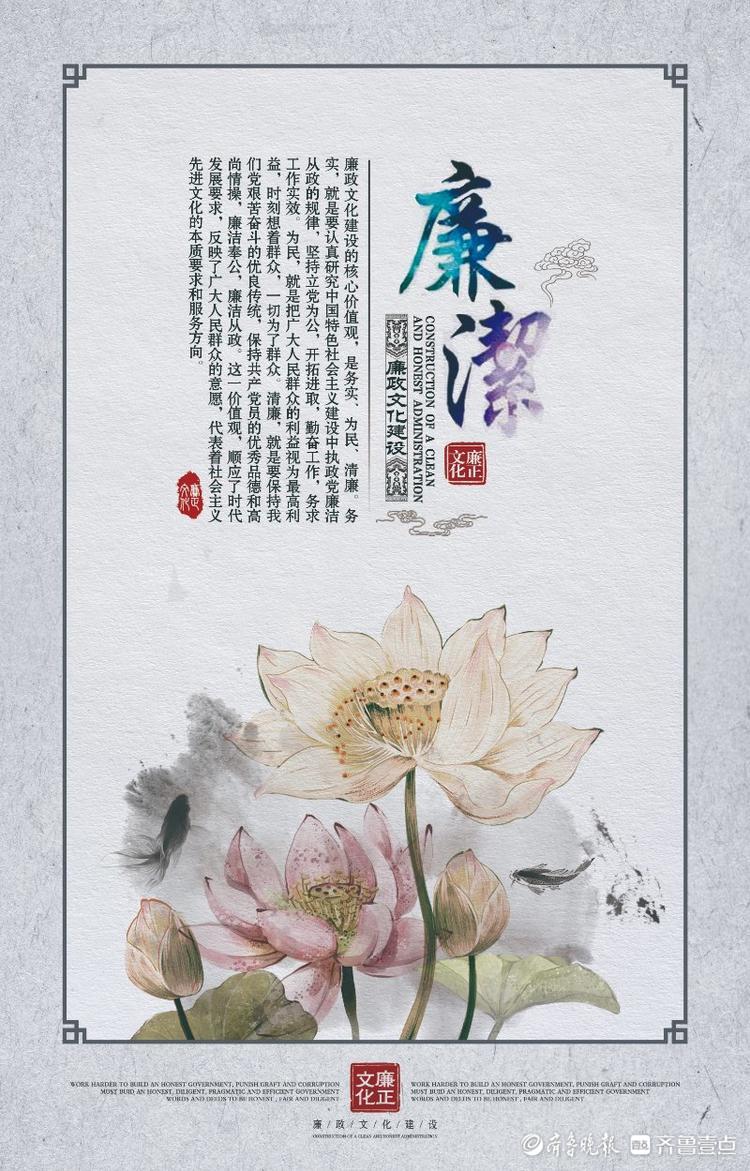 廉潔
CONSTRUCTION OF A CLEAN
AND HONEST ADMINISTRATION
廉政文化建设
廉正
文化
廉政文化建设的核心价值观，是务实、为民、清廉。务
实，就是要认真研究中国特色社会主义建设中执政党廉洁
从政的规律，坚持立党为公，开拓进取，勤奋工作，务求
工作实效。为民，就是把广大人民群众的利益视为最高利
益，时刻想着群众，一切为了群众。清廉，就是要保持我
们党艰苦奋斗的优良传统，保持共产党员的优秀品德和高
尚情操，廉洁奉公，廉洁从政。这一价值观，顺应了时代
发展要求，反映了广大人民群众的意愿，代表着社会主义
先进文化的本质要求和服务方向。
廉正
文化
WORK HARDER TO BUILD AN HONEST GOVERNMENT, PUNISH GRAFT AND CORRUPTION
MUST BUID AN HONEST, DILIGENT, PRAGMATIC AND EFFICIENT GOVERNMENT
WORDS AND DEEDS TO BE HONEST , FAIR AND DILIGENT
廉正
文化
WORK HARDER TO BUILD AN HONEST GOVERNMENT, PUNISH GRAFT AND CORRUPTION
MUST BUID AN HONEST, DILIGENT, PRAGMATIC AND EFFICIENT GOVERNMENT
WORDS AND DEEDS TO BE HONEST , FAIR AND DILIGENT
廉/政/文/化/建/设
CONSTRUCTION OF A CLEAN AND HONEST ADMINISTRATION
齐鲁晚报 齐鲁壹点